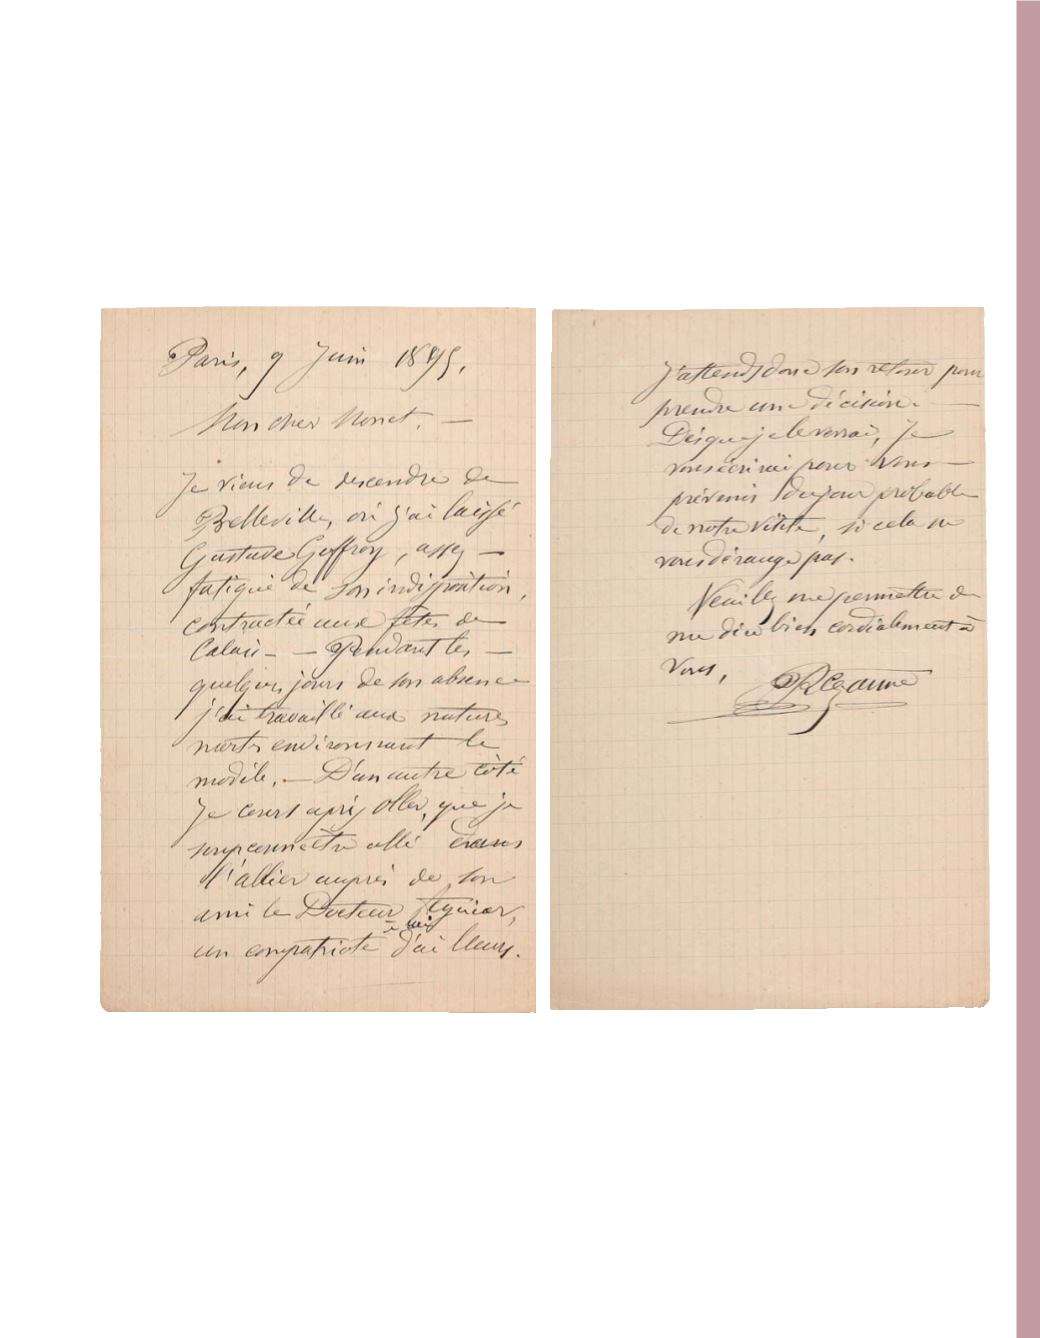 Paris, 9 Juin 1895,
Mon cher Monet. —
Je viens de descendre de
Belleville, où j'ai laissé
Gustave Geffroy, assez —
fatigué de son indisposition,
contractée aux fêtes de
Calais — — Pendant les —
quelques jours de son absence
j'ai travaillé aux natures
mortes environnant le
modèle. — D'un autre côté
Je cours après Oller, que je
soupçonne être allé dans
l'allier auprès de son
ami le Docteur Aguiar,
à lui
un compatriote d'ailleurs.
J'attends donc son retour pour
prendre une décision. —
Dès que je le verrai, Je
vous écrirai pour vous —
prévenir du jour probable
de notre visite, si cela ne
vous dérange pas.
Veuillez me permettre de
me dire bien cordialement à
vous,
P Cezanne